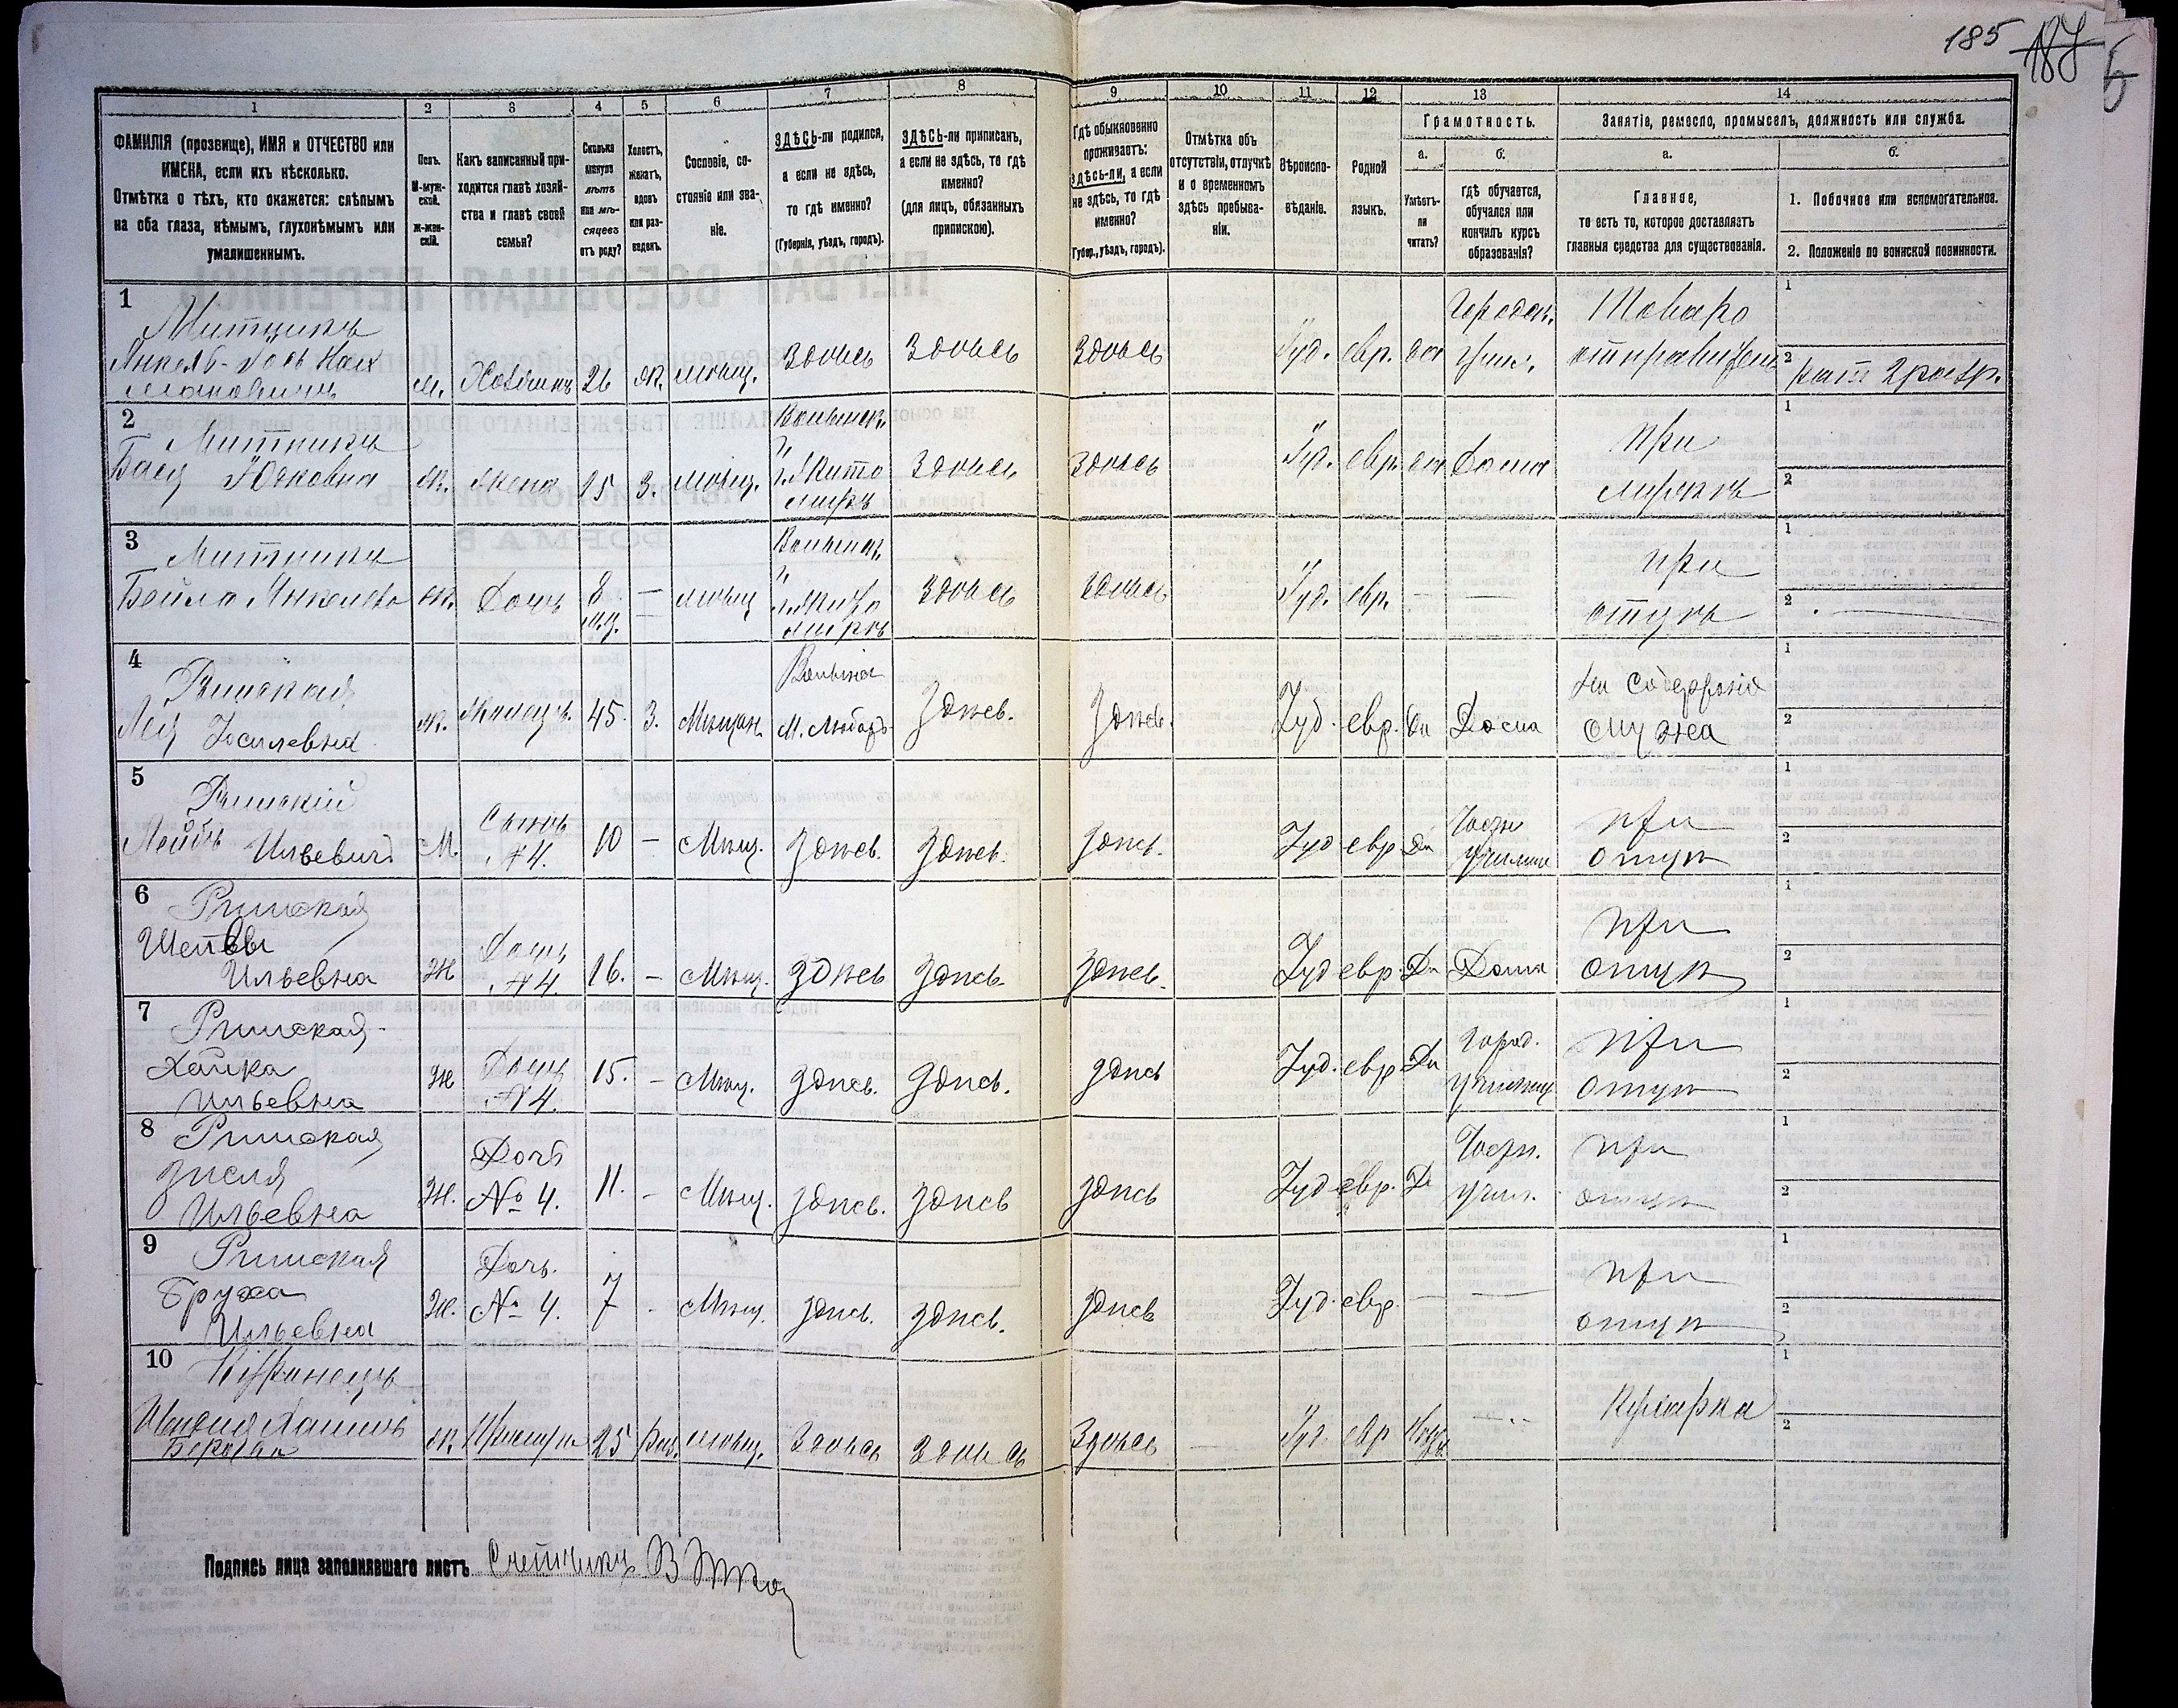 185 187
1 2 3 4 5 6 7 8 9 10 11 12 13 14
ФАМИЛІЯ (прозвище), ИМЯ и ОТЧЕСТВО или
ИМЕНА, если ихъ нѣсколько.
Отмѣтка о тѣхъ, кто окажется: слѣпымъ
на оба глаза, нѣмымъ, глухонѣмымъ или
умалишеннымъ.
Полъ.
М-муж-
ской.
Ж-жен-
скій.
Какъ записанный при-
ходится главѣ хозяй-
ства и главѣ своей
семьи?
Сколько
минуло
лѣтъ
или мѣ-
сяцевъ
отъ роду?
Холостъ,
женатъ,
вдовъ
или раз-
веденъ.
Сословіе, со-
стояніе или зва-
ніе.
ЗДѢСЬ-ли родился,
а если не здѣсь,
то гдѣ именно?
(Губернія, уѣздъ, городъ).
ЗДѢСЬ-ли приписанъ,
а если не здѣсь, то гдѣ
именно?
(для лицъ, обязанныхъ
припискою).
Гдѣ обыкновенно
проживаетъ:
здѣсь-ли, а если
не здѣсь, то гдѣ
именно?
(Губер., уѣздъ, городъ).
Отмѣтка объ
отсутствіи, отлучкѣ
и о временномъ
здѣсь пребыва-
ніи.
Вѣроиспо-
вѣданіе.
Родной
языкъ.
Грамотность.
а.
Умѣетъ-
ли
читать?
б.
гдѣ обучается,
обучался или
кончилъ курсъ
образованія?
Занятіе, ремесло, промыселъ, должность или служба.
а.
Главное,
то есть то, которое доставляетъ
главныя средства для существованія.
б.
1. Побочное или вспомогательное.
2. Положеніе по воинской повинности.
1
Митникъ
м. Хозяинъ 26 ж. мѣщ. Здѣсь Здѣсь Здѣсь Іуд. евр. да
Городск.
учил.
Товаро
отправитель
1
2 рат 2 разр.
2
Митникъ
Бася Юдковна
ж. жена 25 з. мѣщ.
Волынск.
г. Жито
миръ
Здѣсь Здѣсь Іуд. евр. да Дома
при
мужѣ
1
2
3
Митникъ
Бейла Янкелева
ж. Дочь 8 — мѣщ
Волынск.
г. Жито
миръ
Здѣсь Здѣсь Іуд. евр. — —
при
отцѣ
1
2
4
Римская
Лея
ж. 45. З. Мѣщан.
М. Любаръ
Здѣсь. Здѣсь. Іуд. евр. да Дома
На содержаніе
мужа
1
2
5
Римскій
Лейбъ Ильевичъ
М.
Сынъ
№ 4.
10 — Мѣщ. Здѣсь. Здѣсь. Здѣсь. Іуд евр Да
Частн
училище
при
отцѣ
1
2
6
Римская
Ильевна
Ж
Дочь
№ 4.
16. — Мѣщ. Здѣсь Здѣсь. Здѣсь. Іуд евр. Да Дома
при
отцѣ
1
2
7
Римская
Хайка
Ильевна
Ж
Дочь
№ 4.
15. — Мѣщ. Здѣсь. Здѣсь. Здѣсь Іуд. евр Да
Город.
училищ
при
отцѣ
1
2
8
Римская
Зисля
Ильевна
Ж.
Дочь
№ 4.
11. — Мѣщ. Здѣсь. Здѣсь Здѣсь Іуд евр. Да
Частн.
учил.
при
отцѣ
1
2
9
Римская
Бруха
Ильевна
Ж.
Дочь.
№ 4.
7 - Мѣщ. Здѣсь. Здѣсь. Здѣсь Іуд. евр. — —
при
отцѣ
1
2
10
ж. Прислуга 25 мѣщ. Здѣсь Здѣсь Здѣсь — Іуд. евр —
Кухарка
1
2
Подпись лица заполнявшаго листъ Счетчикъ В